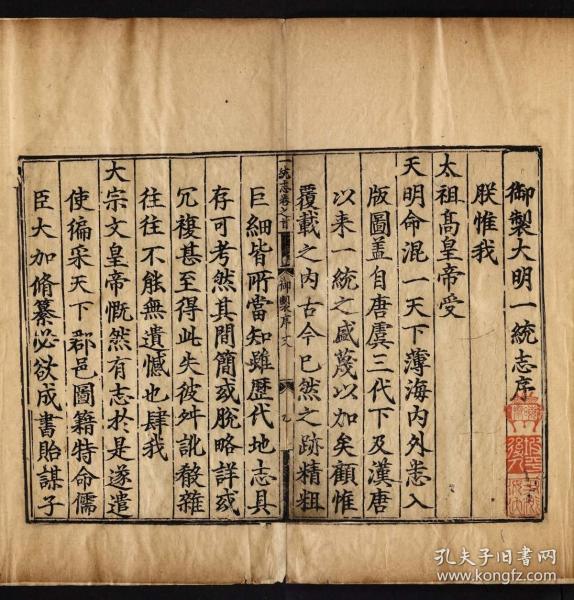 御製大明一統志序
朕惟我
太祖高皇帝受
天明命混一天下薄海内外悉入
版圖盖自唐虞三代下及漢唐
以来一統之盛蔑以加矣顧惟
覆載之内古今已然之跡精粗
一統志卷之首
御製序文
巨細皆所當知雖歷代地志具
存可考然其間簡或脫略詳或
冗複甚至得此失彼舛訛殽雜
往往不能無遺憾也肆我
大宗文皇帝慨然有志於是遂遣
使徧采天下郡邑圖籍特命儒
臣大加脩纂必欲成書貽謀子
孔夫子旧书网
www.kongfz.com